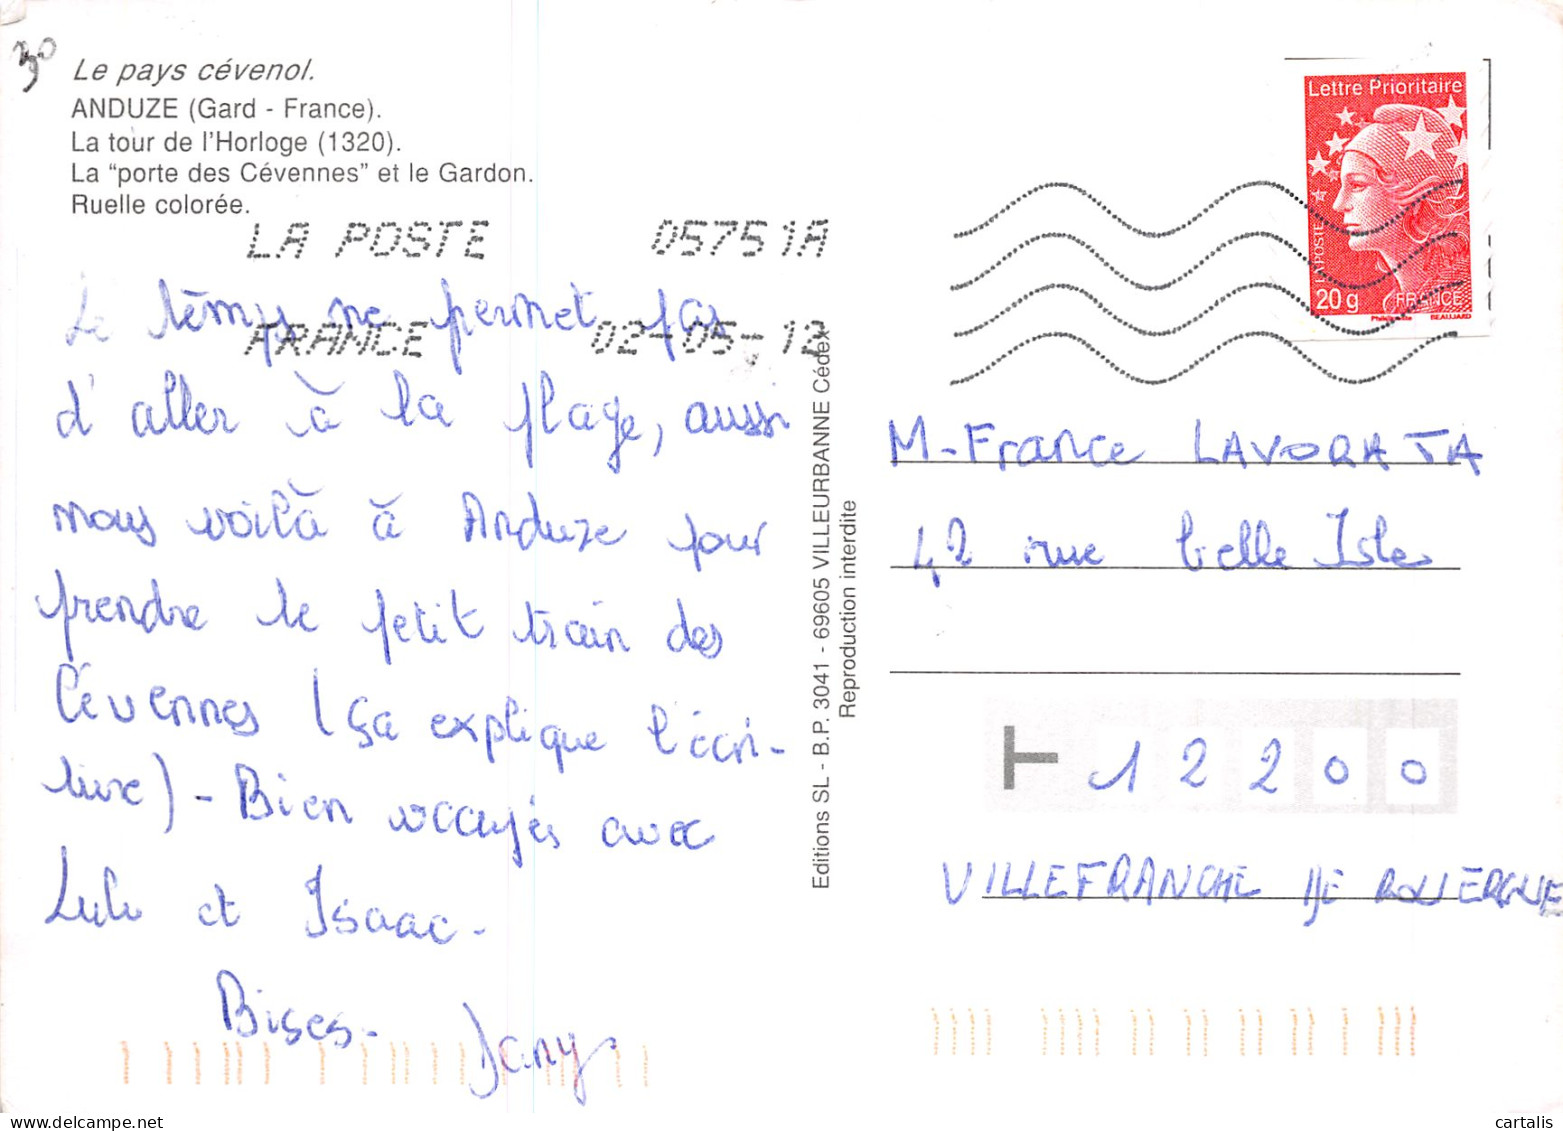 30
Le pays cévenol.
ANDUZE (Gard - France).
La tour de l'Horloge (1320).
La "porte des Cévennes" et le Gardon.
Ruelle colorée.
LA POSTE 05751A
FRANCE 02-05-12
Lettre Prioritaire
LA POSTE
20 g FRANCE
Phil@poste BEAUJARD
Le temps ne permet pas
d'aller à la plage, aussi
nous voilà à Anduze pour
prendre le petit train des
Cévennes (ça explique l'écri-
ture) - Bien occupés avec
Lulu et Isaac -
Bises - Dany
Editions SL - B.P. 3041 - 69605 VILLEURBANNE Cédex
Reproduction interdite
M-France LAVORATA
42 rue belle Isle
12200
VILLEFRANCHE DE ROUERGUE
cartalis